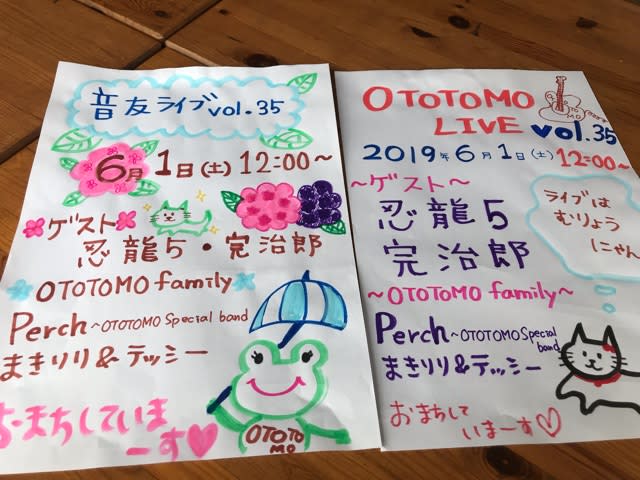 音友ライブ vol.35
6月1日(土) 12:00～
ゲスト
忍龍5・完治郎
OTOTOMO family
Perch ~OTOTOMO Special band
まきりり&テッシー
おまちしていま
ーす♡
OTOTO
MO
OTOTOMO
LIVE vol.35
2019年6月1日(土) 12:00～
～ゲスト～
忍龍5
完治郎
ライブは
むりょう
にゃん
～OTOTOMO family～
Perch ~OTOTOMO Special
band
まきりり&テッシー
おまちして
いまーす♡